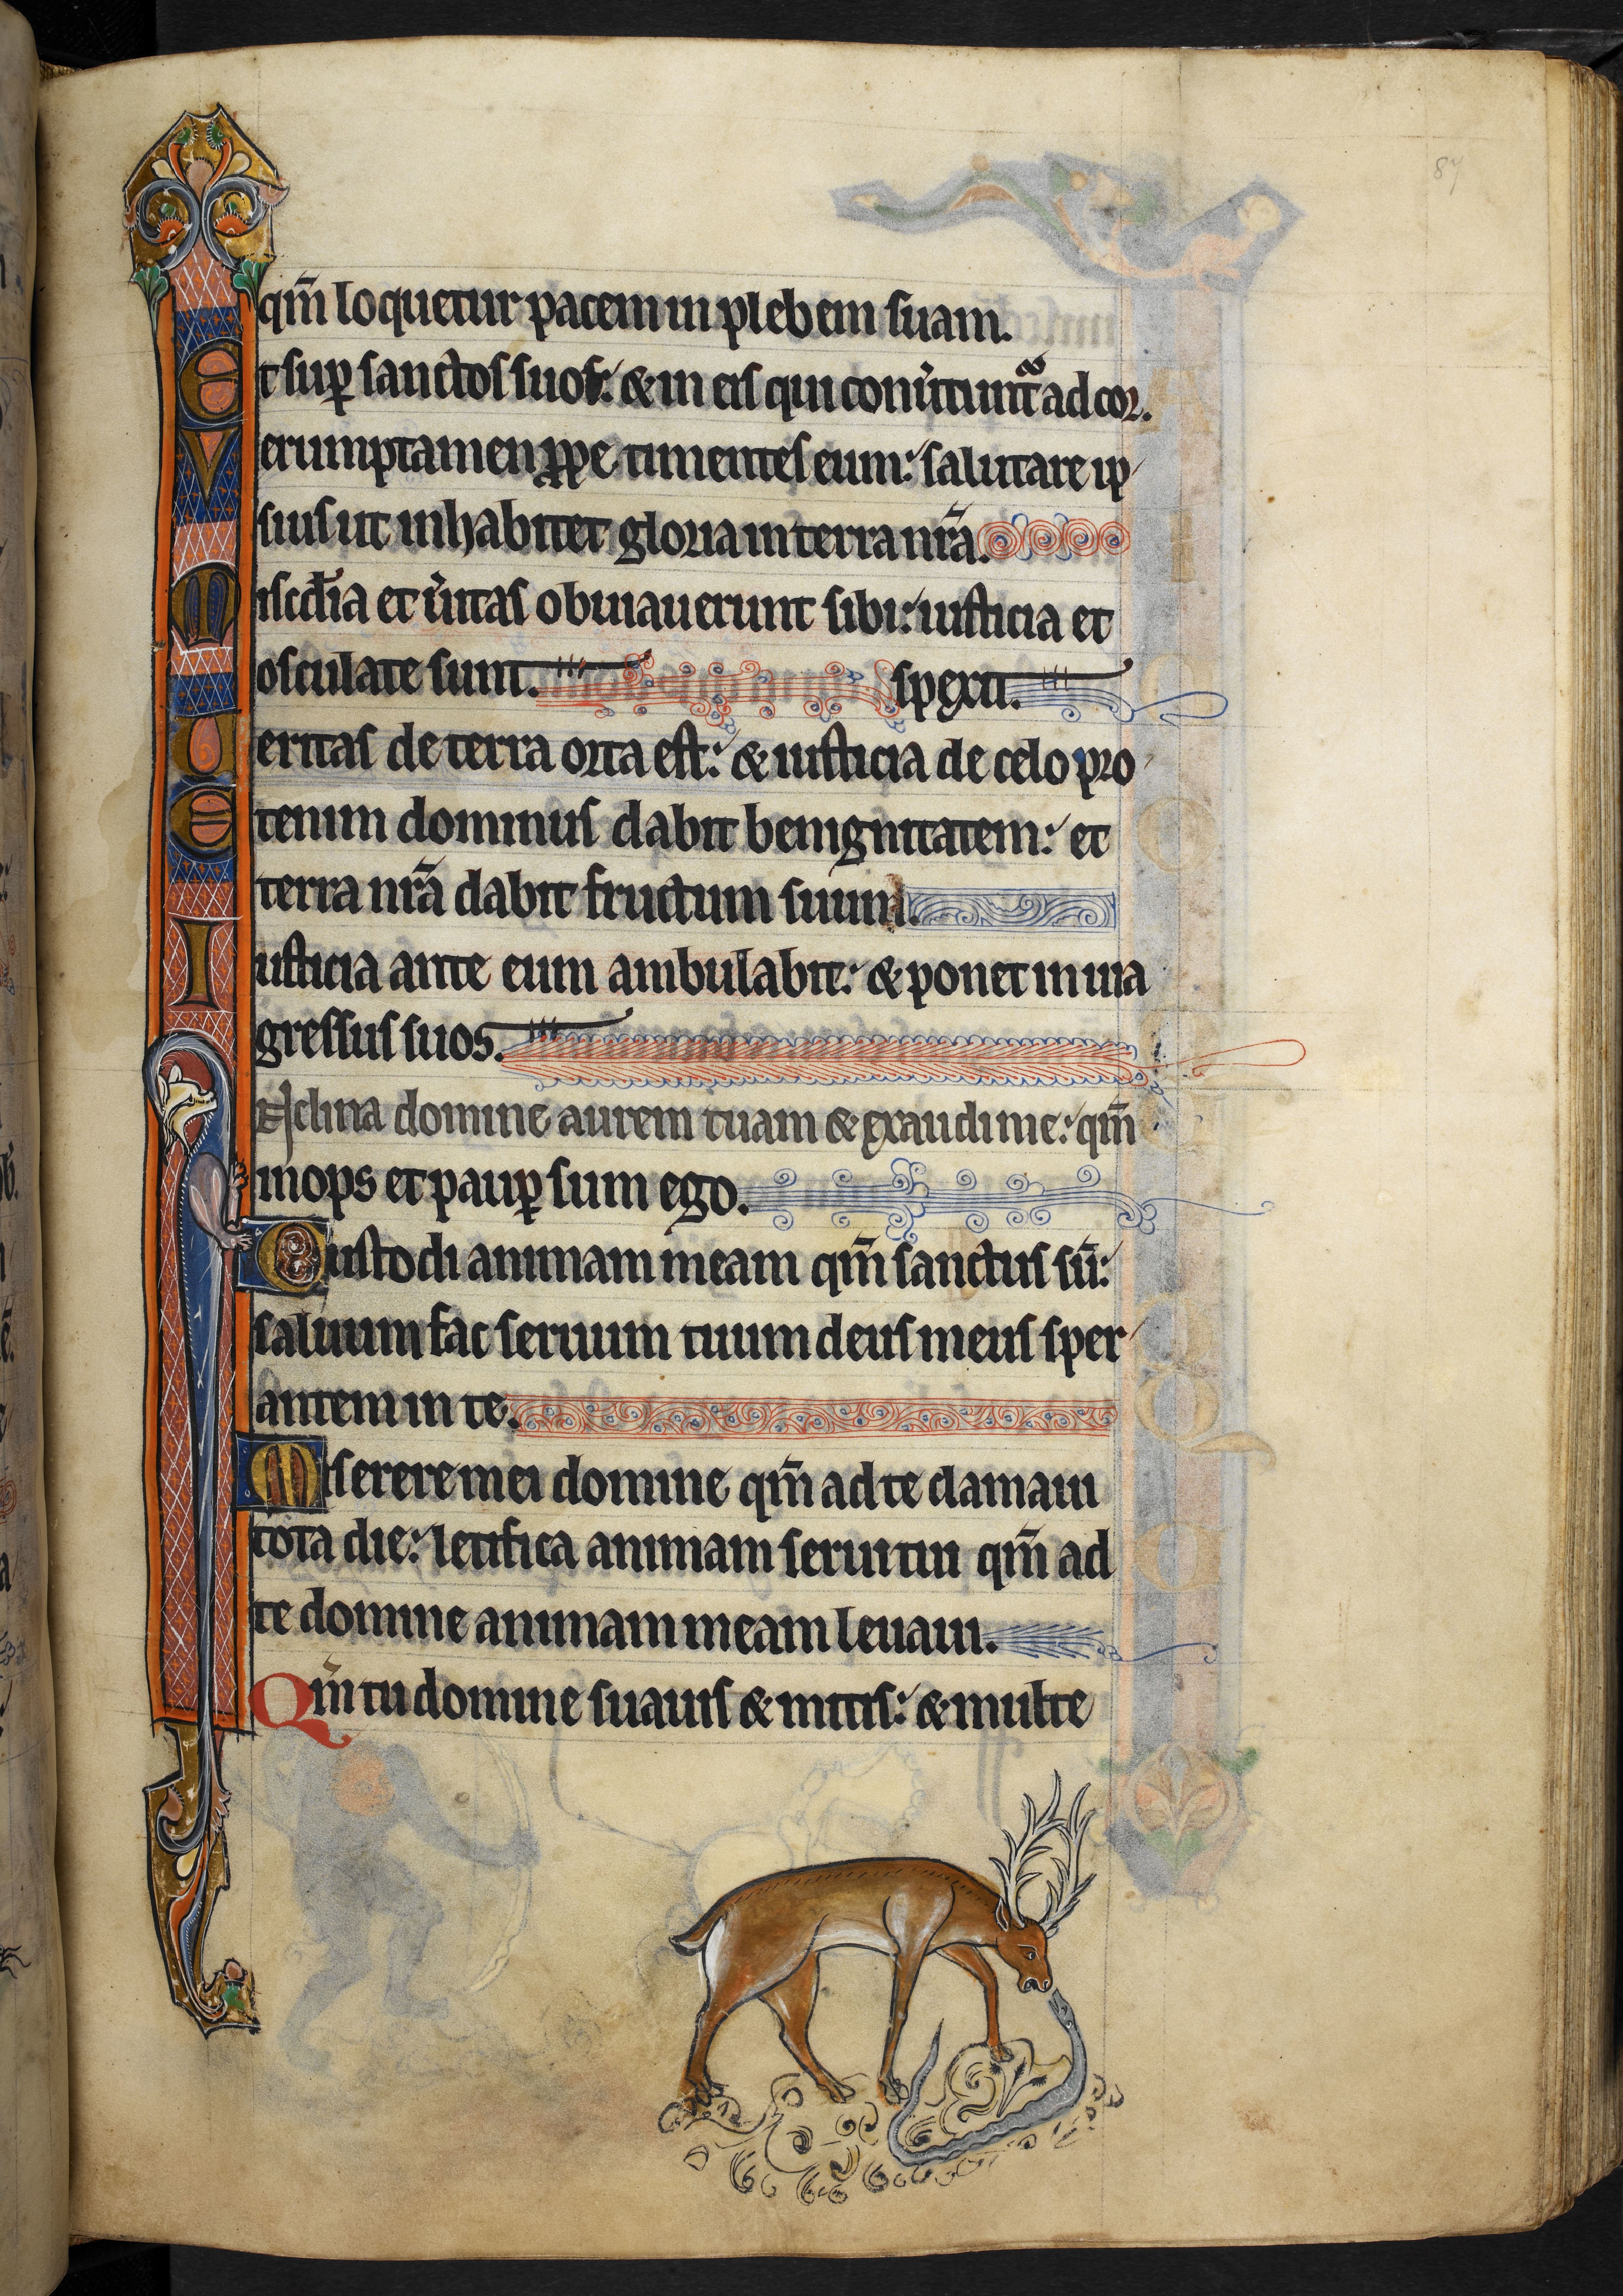 87
qm̄ loquetur pacem in plebem suam.
Et sup̱ sanctos suos: & in eis qui conu̓tunt̃ ad cor.
Verumptamen ꝓpe timentes eum: salutare ip
sius ut inhabitet gloria in terra nr̄a.
Misc̄dia et u̓itas obuiauerunt sibi: iusticia et
osculate sunt. spexit.
Ueritas de terra orta est: & iusticia de celo pro
Etenim dominus dabit benignitatem: et
terra nr̄a dabit fructum suum.
Iusticia ante eum ambulabit: & ponet in uia
gressus suos.
Nclina domine aurem tuam & exaudi me: qm̄
inops et paup̱ sum ego.
Custodi animam meam qm̄ sanctus su̅:
saluum fac seruum tuum deus meus sper
antem in te.
Miserere mei domine qm̄ ad te clamaui
tota die: letifica animam serui tui qm̄ ad
te domine animam meam leuaui.
Qm̄ tu domine suauis & mitis: & multe